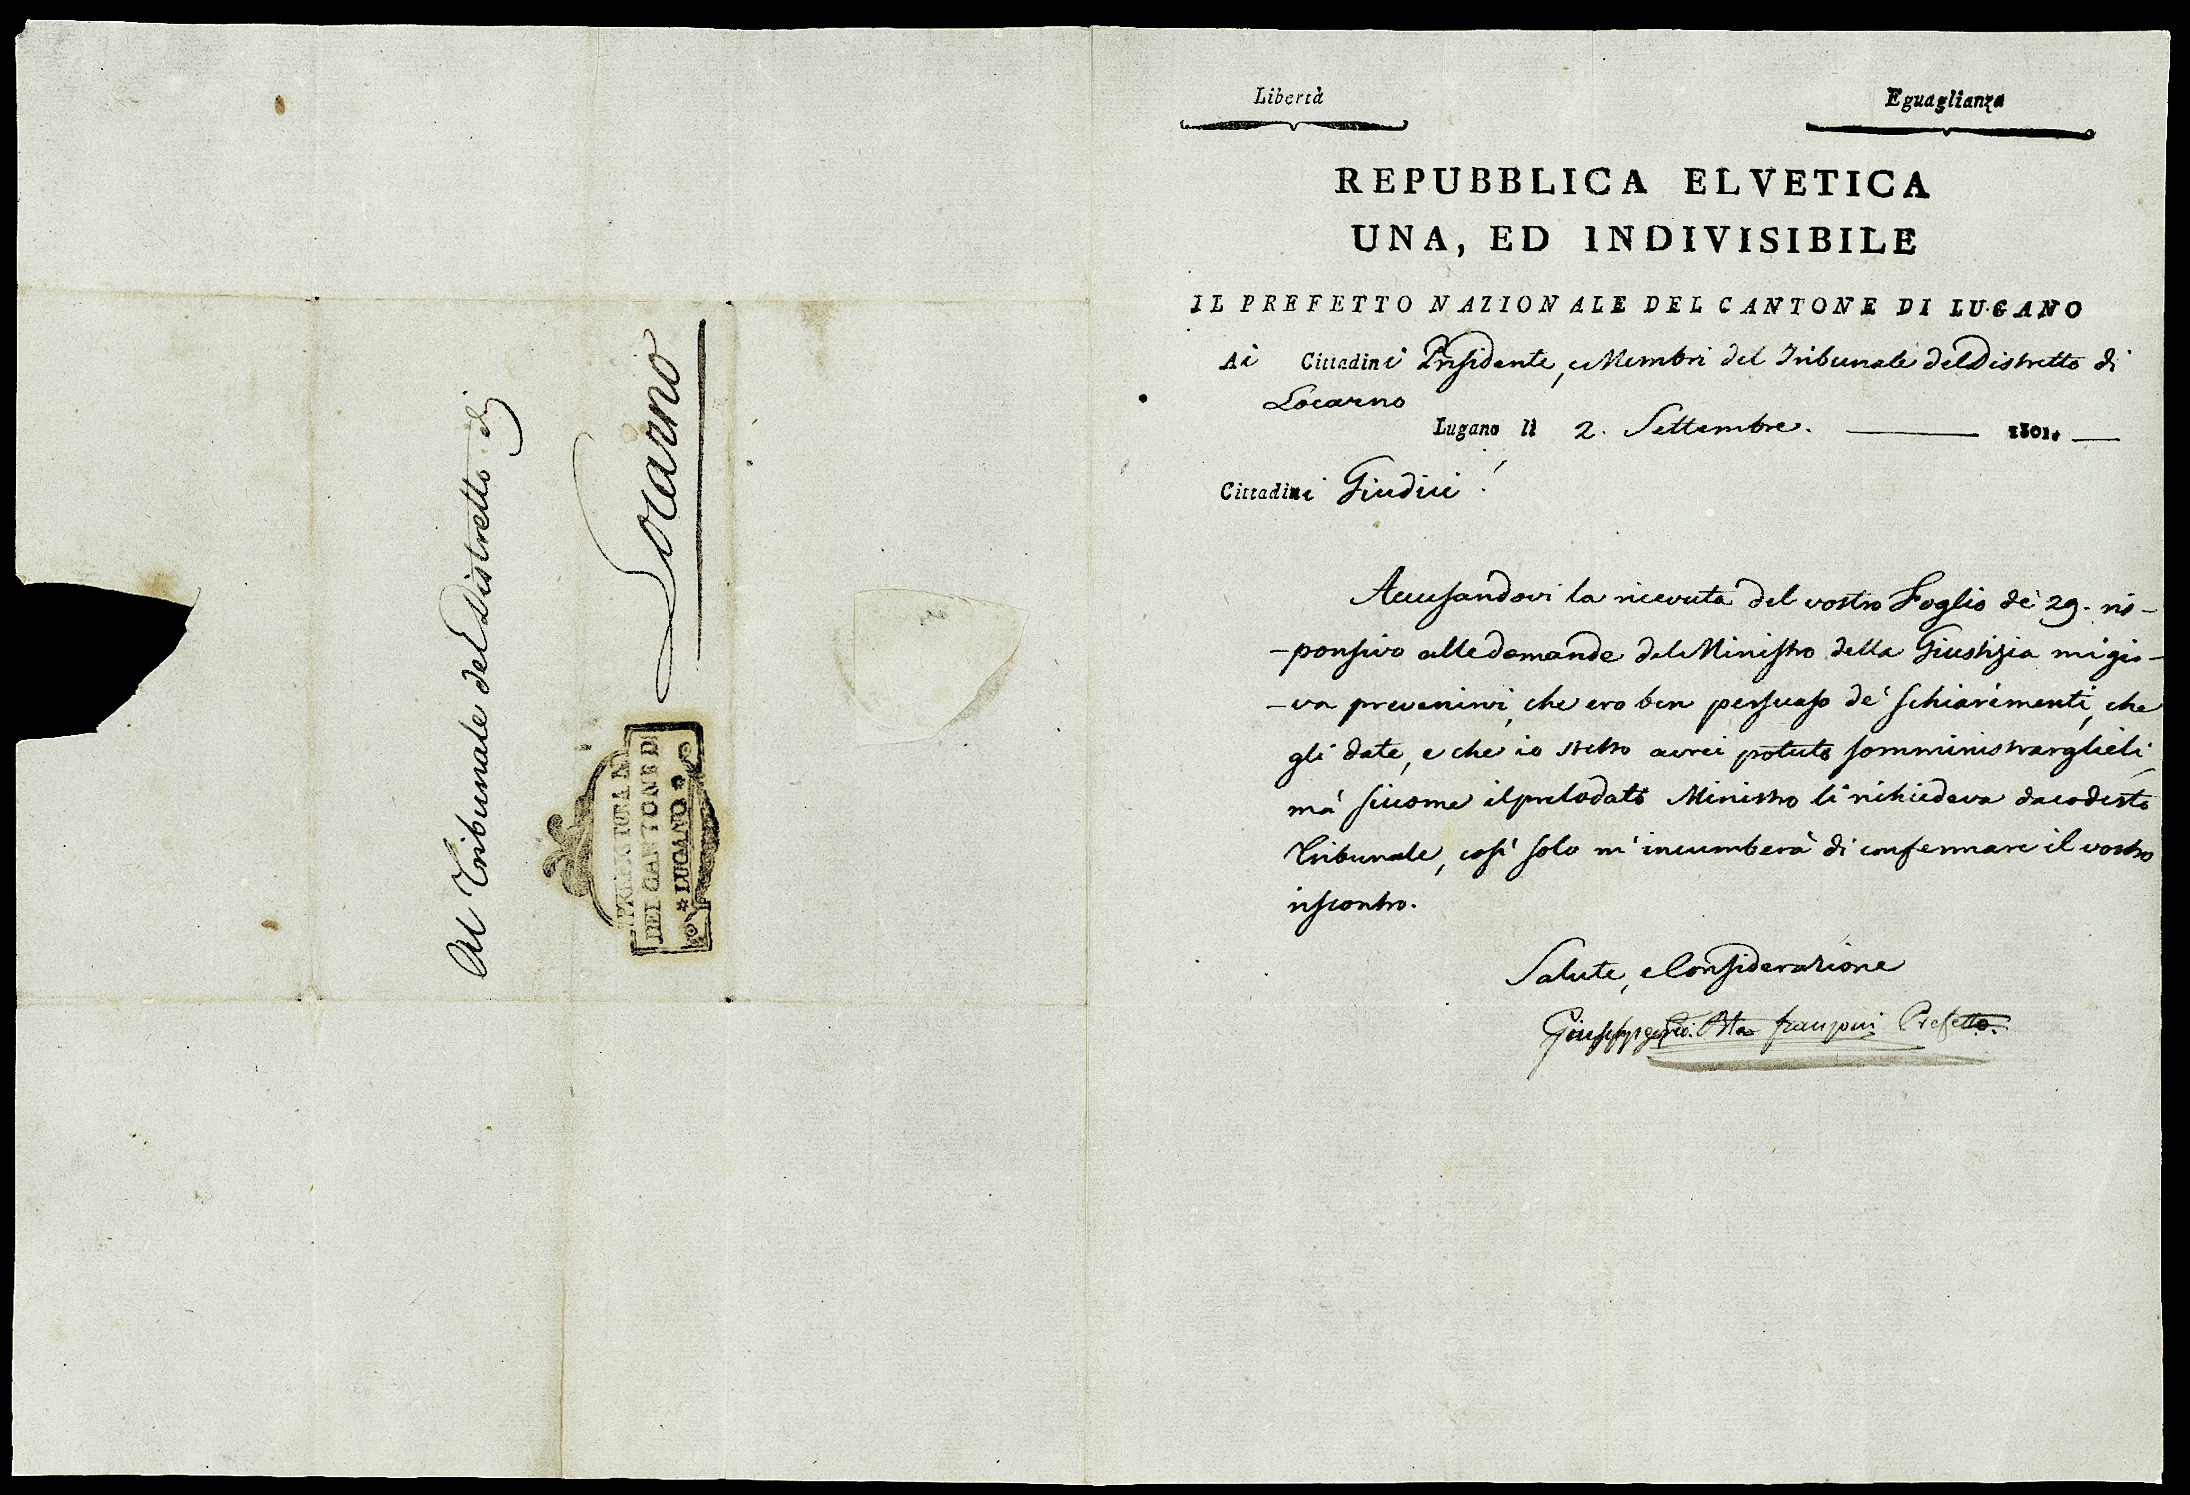 Al Tribunale del Distretto di
Locarno
PREFETTURA N.
DEL CANTONE DI
* LUGANO *
Libertà
Eguaglianza
REPUBBLICA ELVETICA
UNA, ED INDIVISIBILE
IL PREFETTO NAZIONALE DEL CANTONE DI LUGANO
Ai Cittadini Presidente, e Membri del Tribunale del Distretto di
Locarno
Lugano lì 2. Settembre. 1801.
Cittadini Giudici!
Accusandovi la ricevuta del vostro Foglio de' 29. ris-
-ponsivo alle domande del Ministro della Giustizia mi gio-
-va prevenirvi, che ero ben persuaso de' schiarimenti, che
gli date, e che io stesso avrei potuto somministrarglieli,
mà siccome il prelodato Ministro li richiedeva da codesto
Tribunale, così solo m'incumberà di confermare il vostro
riscontro.
Salute, e Considerazione
Giuseppe Franzoni Prefetto.